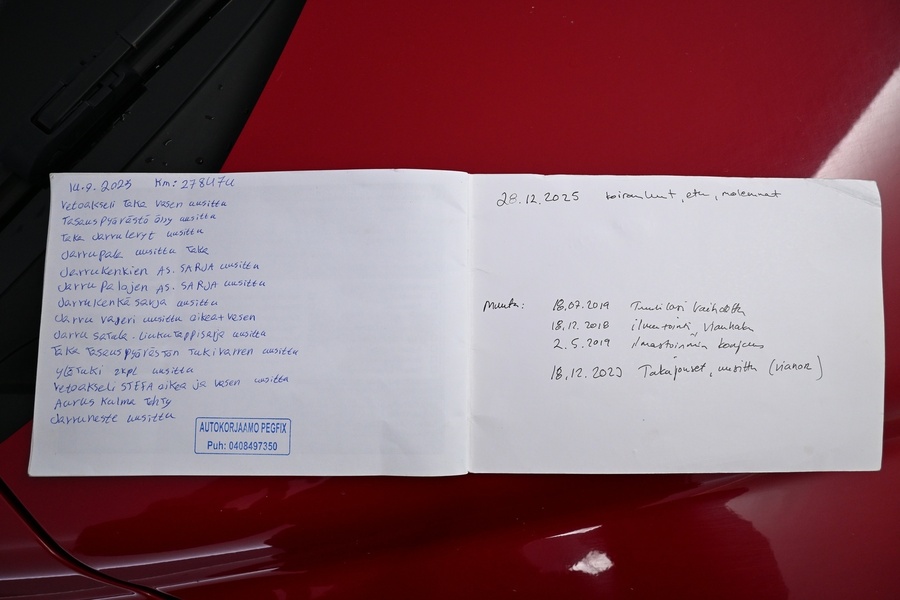 14.9.2025 Km: 278474
Vetoakseli Taka Vasen uusittu
Tasauspyörästö öljy uusittu
Taka Jarrulevyt uusittu
Jarrupala uusittu Taka
Jarrukenkien AS. SARJA uusittu
Jarru Palojen AS. SARJA uusittu
Jarrukenkä sarja uusittu
Jarru vaijeri uusittu oikea+vasen
Jarru satula. Liukutappisarja uusittu
Taka Tasauspyörästön Tukivarren uusittu
ylötuki 2kpl uusittu
Vetoakseli STEFA oikea ja vasen uusittu
Aurus Kulma Tehty
Jarruneste uusittu
AUTOKORJAAMO PEGFIX
Puh: 0408497350
28.12.2025 koiranluut, etu, molemmat
Muuta: 18.07.2019 Tuulilasi Vaihdettu
18.12.2018 ilmastointi, vianhaku
2.5.2019 ilmastoinnin korjaus
18.12.2023 Takajouset, uusittu (vianor)